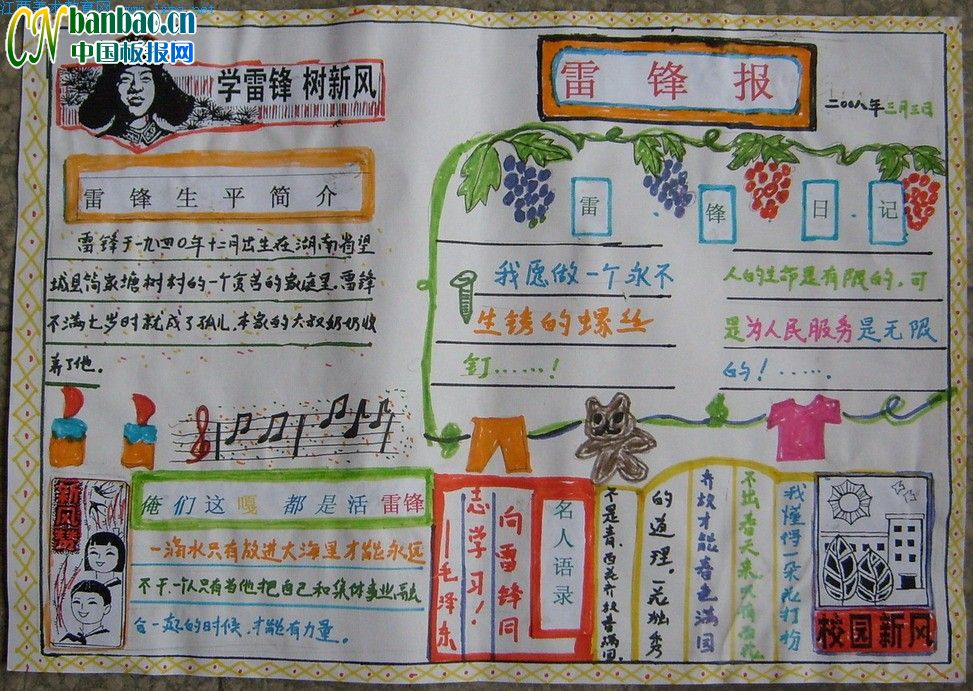 banbao.cn
中国板报网
学雷锋 树新风
雷锋报
二00八年三月三日
雷锋生平简介
雷锋于一九四0年十二月出生在湖南省望
城县简家塘村的一个贫苦的家庭里.雷锋
不满七岁时就成了孤儿.本家的六叔奶奶收
养了他。
雷.锋日.记
我愿做一个永不
生锈的螺丝
钉……!
人的生命是有限的,可
是为人民服务是无限
的!……
新风赞
俺们这嘎都是活雷锋
一滴水只有放进大海里才能永远
不干一个人只有当他把自己和集体事业融
合一起的时候,才能有力量。
名人语录
向雷锋同
志学习!
——毛泽东
我懂得一朵花打扮
不出春天来,只有百花
齐放才能春色满园
的道理。一花独秀
不是春,百花齐放春满园。
校园新风